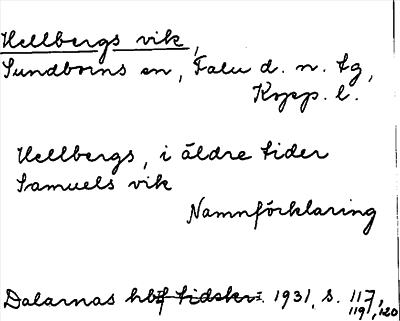 Hellbergs vik,
Sundborns sn, Falu d. n. tg,
Kopp. l.
Hellbergs, i äldre tider
Samuels vik
Namnförklaring
Dalarnas hbf tidskr. 1931, s. 117,
119, 120